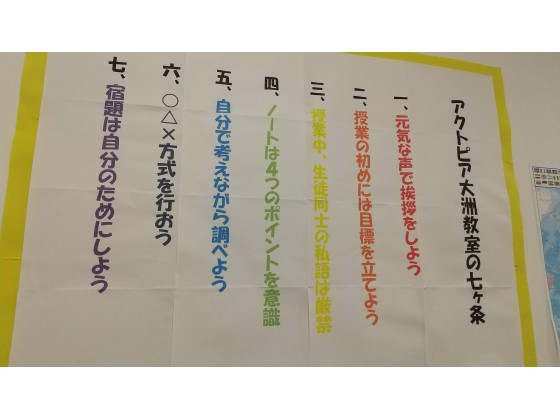 アクトピア大洲教室の七ヶ条
一、元気な声で挨拶をしよう
二、授業の初めには目標を立てよう
三、授業中、生徒同士の私語は厳禁
四、ノートは4つのポイントを意識
五、自分で考えながら調べよう
六、○△×方式を行おう
七、宿題は自分のためにしよう